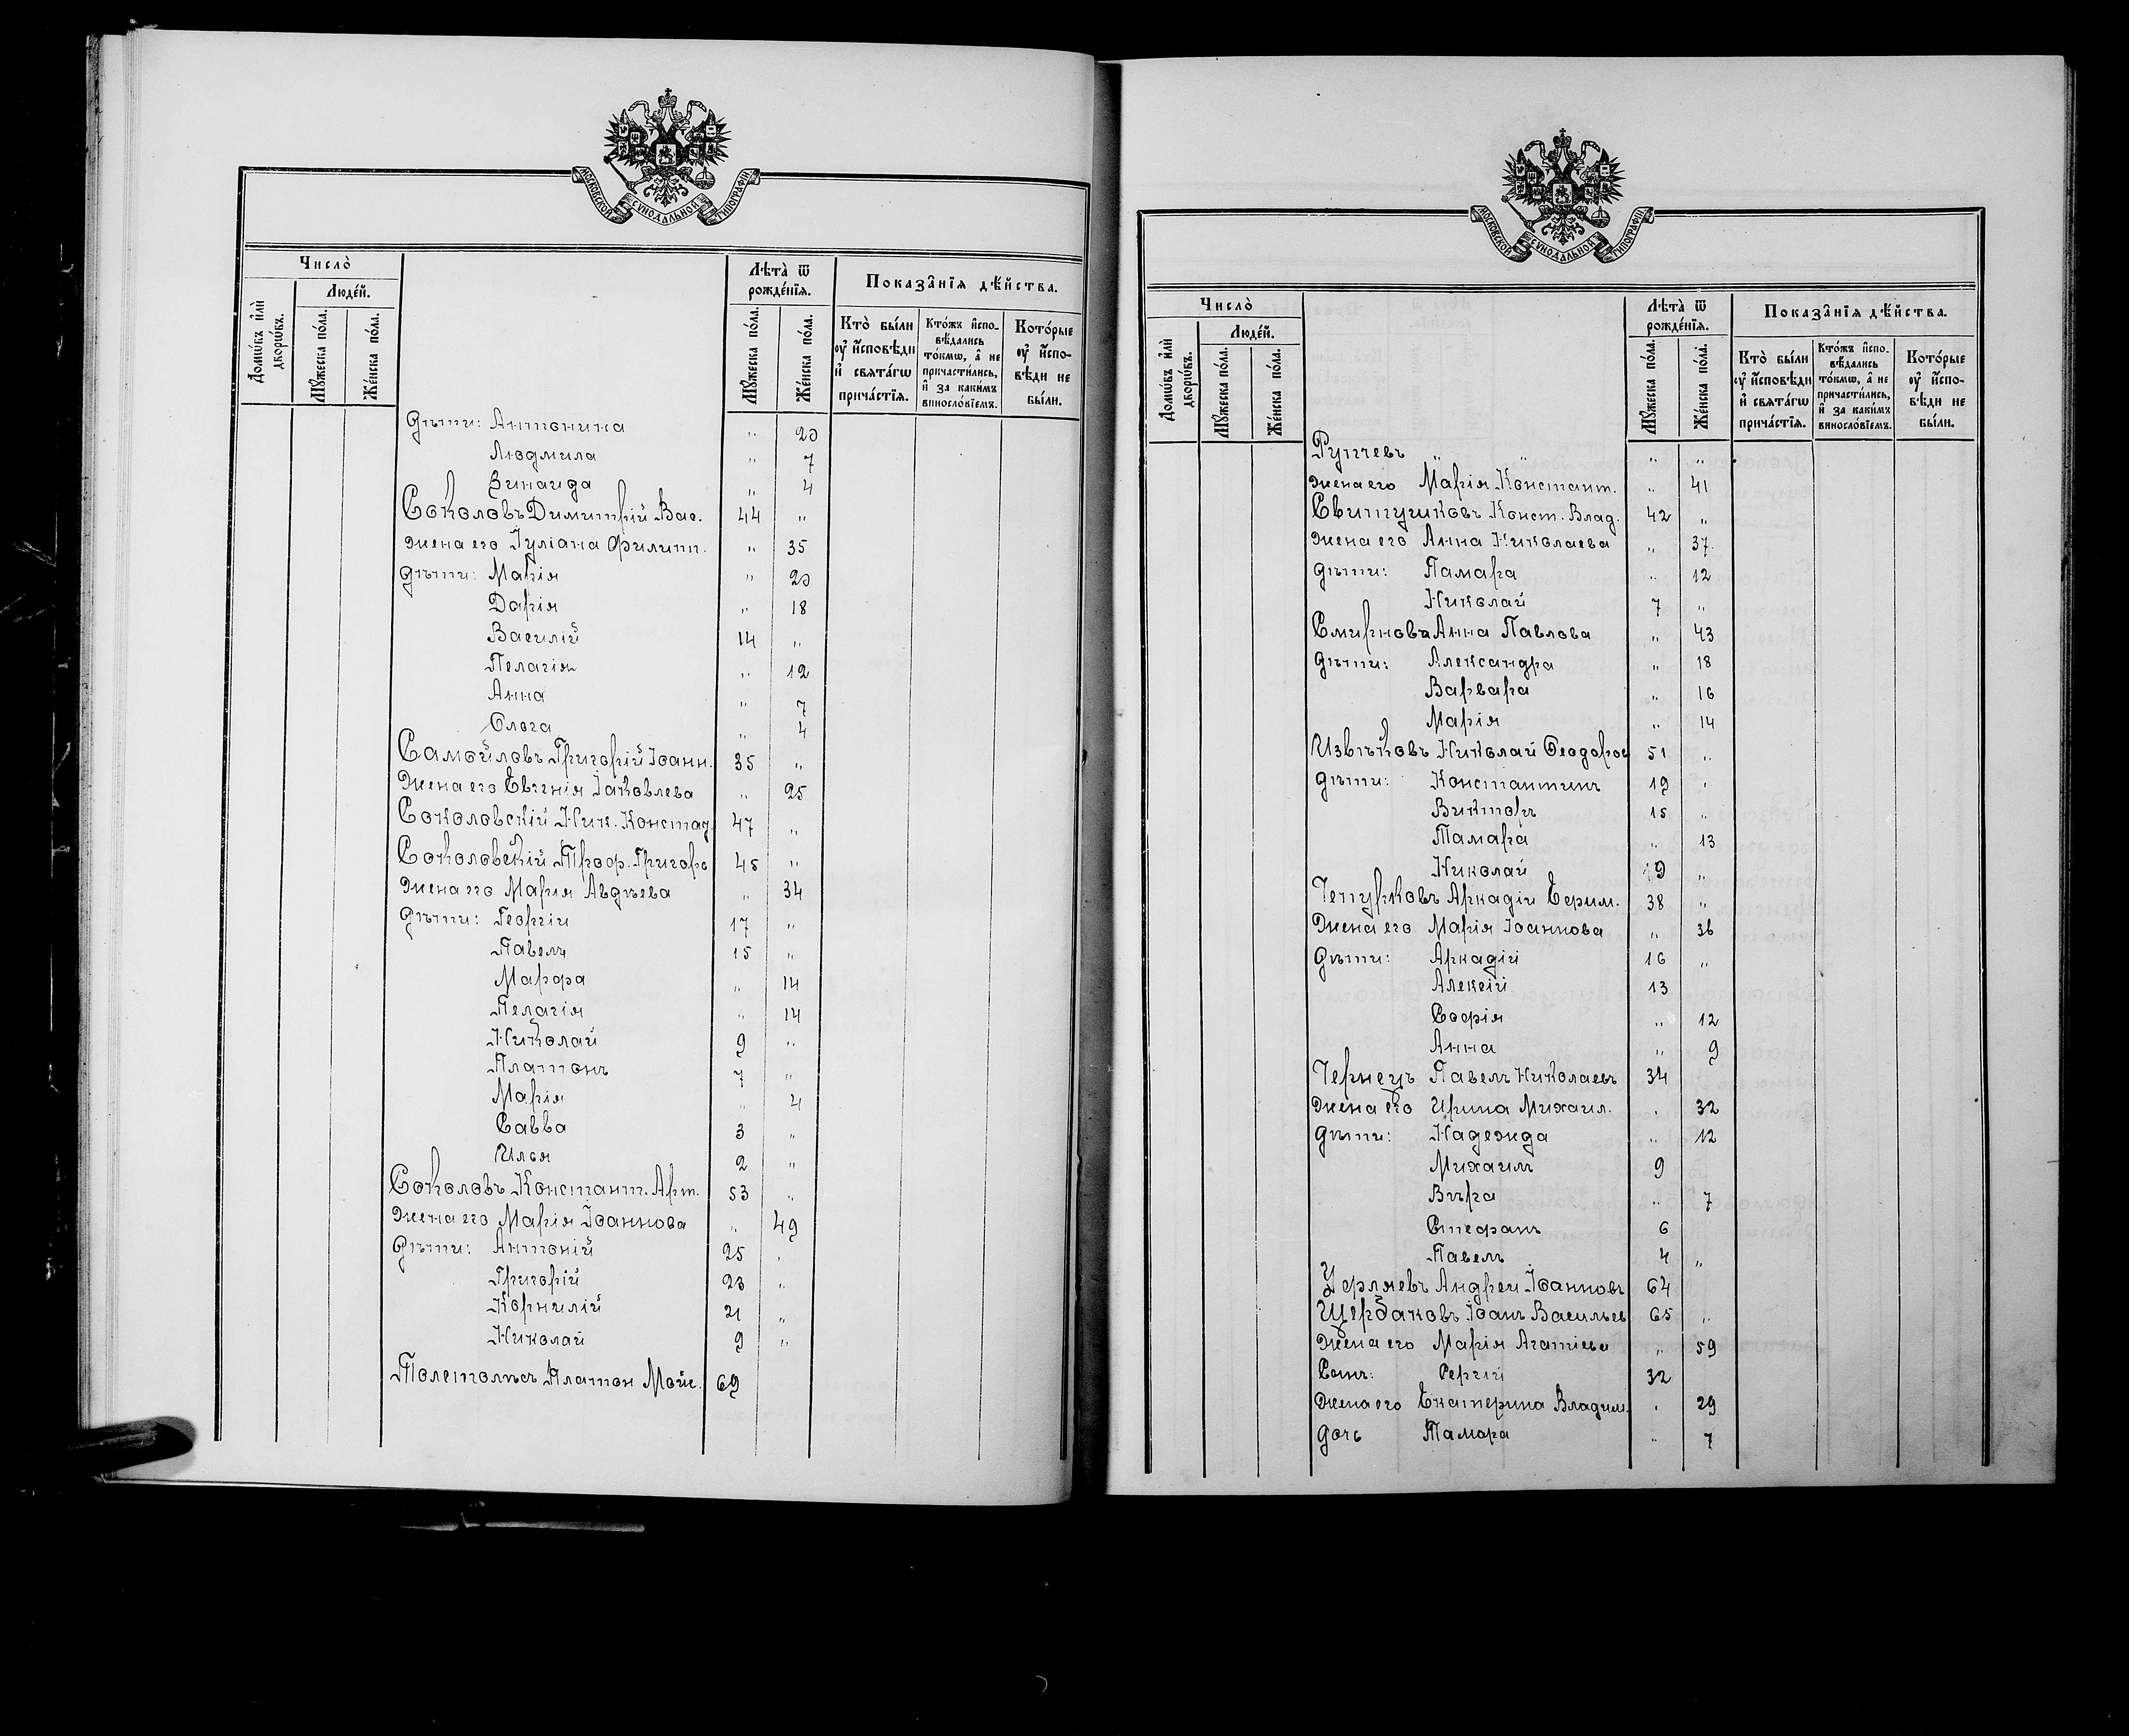 МОСКОВСКОЙ СѴНОДАЛЬНОЙ ТИПОГРАФІИ
Число̀
Домѡ́въ и҆лѝ дворѡ́въ.
Люде́й.
Мꙋ́жеска по́ла.
Же́нска по́ла.
Лѣта̀ ѿ рожде́нїѧ.
Мꙋ́жеска по́ла.
Же́нска по́ла.
Показа̂нїѧ дѣ́йства.
Кто̀ бы́ли ᲂу҆ и҆́сповѣди и҆ свѧта́гѡ прича́стїѧ.
Кто́жъ и҆спо- вѣ́дались то́кмѡ, а҆ не причасти́лись, и҆ за каки́мъ виносло́вїемъ.
Кото́рые ᲂу҆ и҆́спо- вѣди не бы́ли.
Дѣти: Антонина " 20
Людмила " 7
Зинаида " 4
Соколовъ Димитрій Вас. 44 "
жена его Іуліана Филипп. " 35
дѣти: Марія " 20
Дарія " 18
Василій 14 "
Пелагія " 12
Анна " 7
Ольга " 4
Самойловъ Григорій Іоанн. 35 "
Жена его Евгенія Іаковлева " 25
Соколовскій Ник. Констад. 47 "
Соколовскій Троф. Григорь 45 "
Жена его Мария Авдѣева " 34
Дѣти: Георгіи 17 "
Павелъ 15 "
Марфа " 14
Пелагія " 14
Николай 9 "
Платонъ 7 "
Марія " 4
Савва 3 "
Илья 2 "
Соколовъ Констант. Арт. 53 "
Жена его Марія Іоаннова " 49
Дѣти: Антоній 25 "
Григорій 23 "
Корнилій 21 "
Николай 9 "
Платон 69
МОСКОВСКОЙ СѴНОДАЛЬНОЙ ТИПОГРАФІИ
Число̀
Домѡ́въ и҆лѝ дворѡ́въ.
Люде́й.
Мꙋ́жеска по́ла.
Же́нска по́ла.
Лѣта̀ ѿ рожде́нїѧ.
Мꙋ́жеска по́ла.
Же́нска по́ла.
Показа̂нїѧ дѣ́йства.
Кто̀ бы́ли ᲂу҆ и҆́сповѣди и҆ свѧта́гѡ прича́стїѧ.
Кто́жъ и҆спо- вѣ́дались то́кмѡ, а҆ не причасти́лись, и҆ за каки́мъ виносло́вїемъ.
Кото́рые ᲂу҆ и҆́спо- вѣди не бы́ли.
" " " "
жена его Марія Констант. " 41
Свитушковъ Конст. Влад. 42 "
жена его Анна Николаева " 37
дѣти: Тамара " 12
Николай 7 "
Смирнова Анна Павлова " 43
дѣти: Александра " 18
Варвара " 16
Марія " 14
Извѣковъ Николай Ѳеодоров 51 "
дѣти: Константинъ 19 "
Викторъ 15 "
Тамара " 13
Николай 9 "
Чепурковъ Аркадіи Ефим. 38 "
Жена его Марія Іоаннова " 36
Дѣти: Аркадій 16 "
Алексій 13
Софія " 12
Анна " 9
Чернецъ Павелъ Николаевъ 34
Жена его Ирина Михаил. " 32
Дѣти: Надежда " 12
Михаилъ 9
Вѣра " 7
Стефанъ 6
Павелъ 4 "
Андреи Іоанновъ 64
Щербаковъ Іоанъ Васильев 65 "
Жена его Марія Агапіева " 59
Сынъ: Сергій 32
Жена его Екатерина Владим. " 29
дочь Тамара " 7